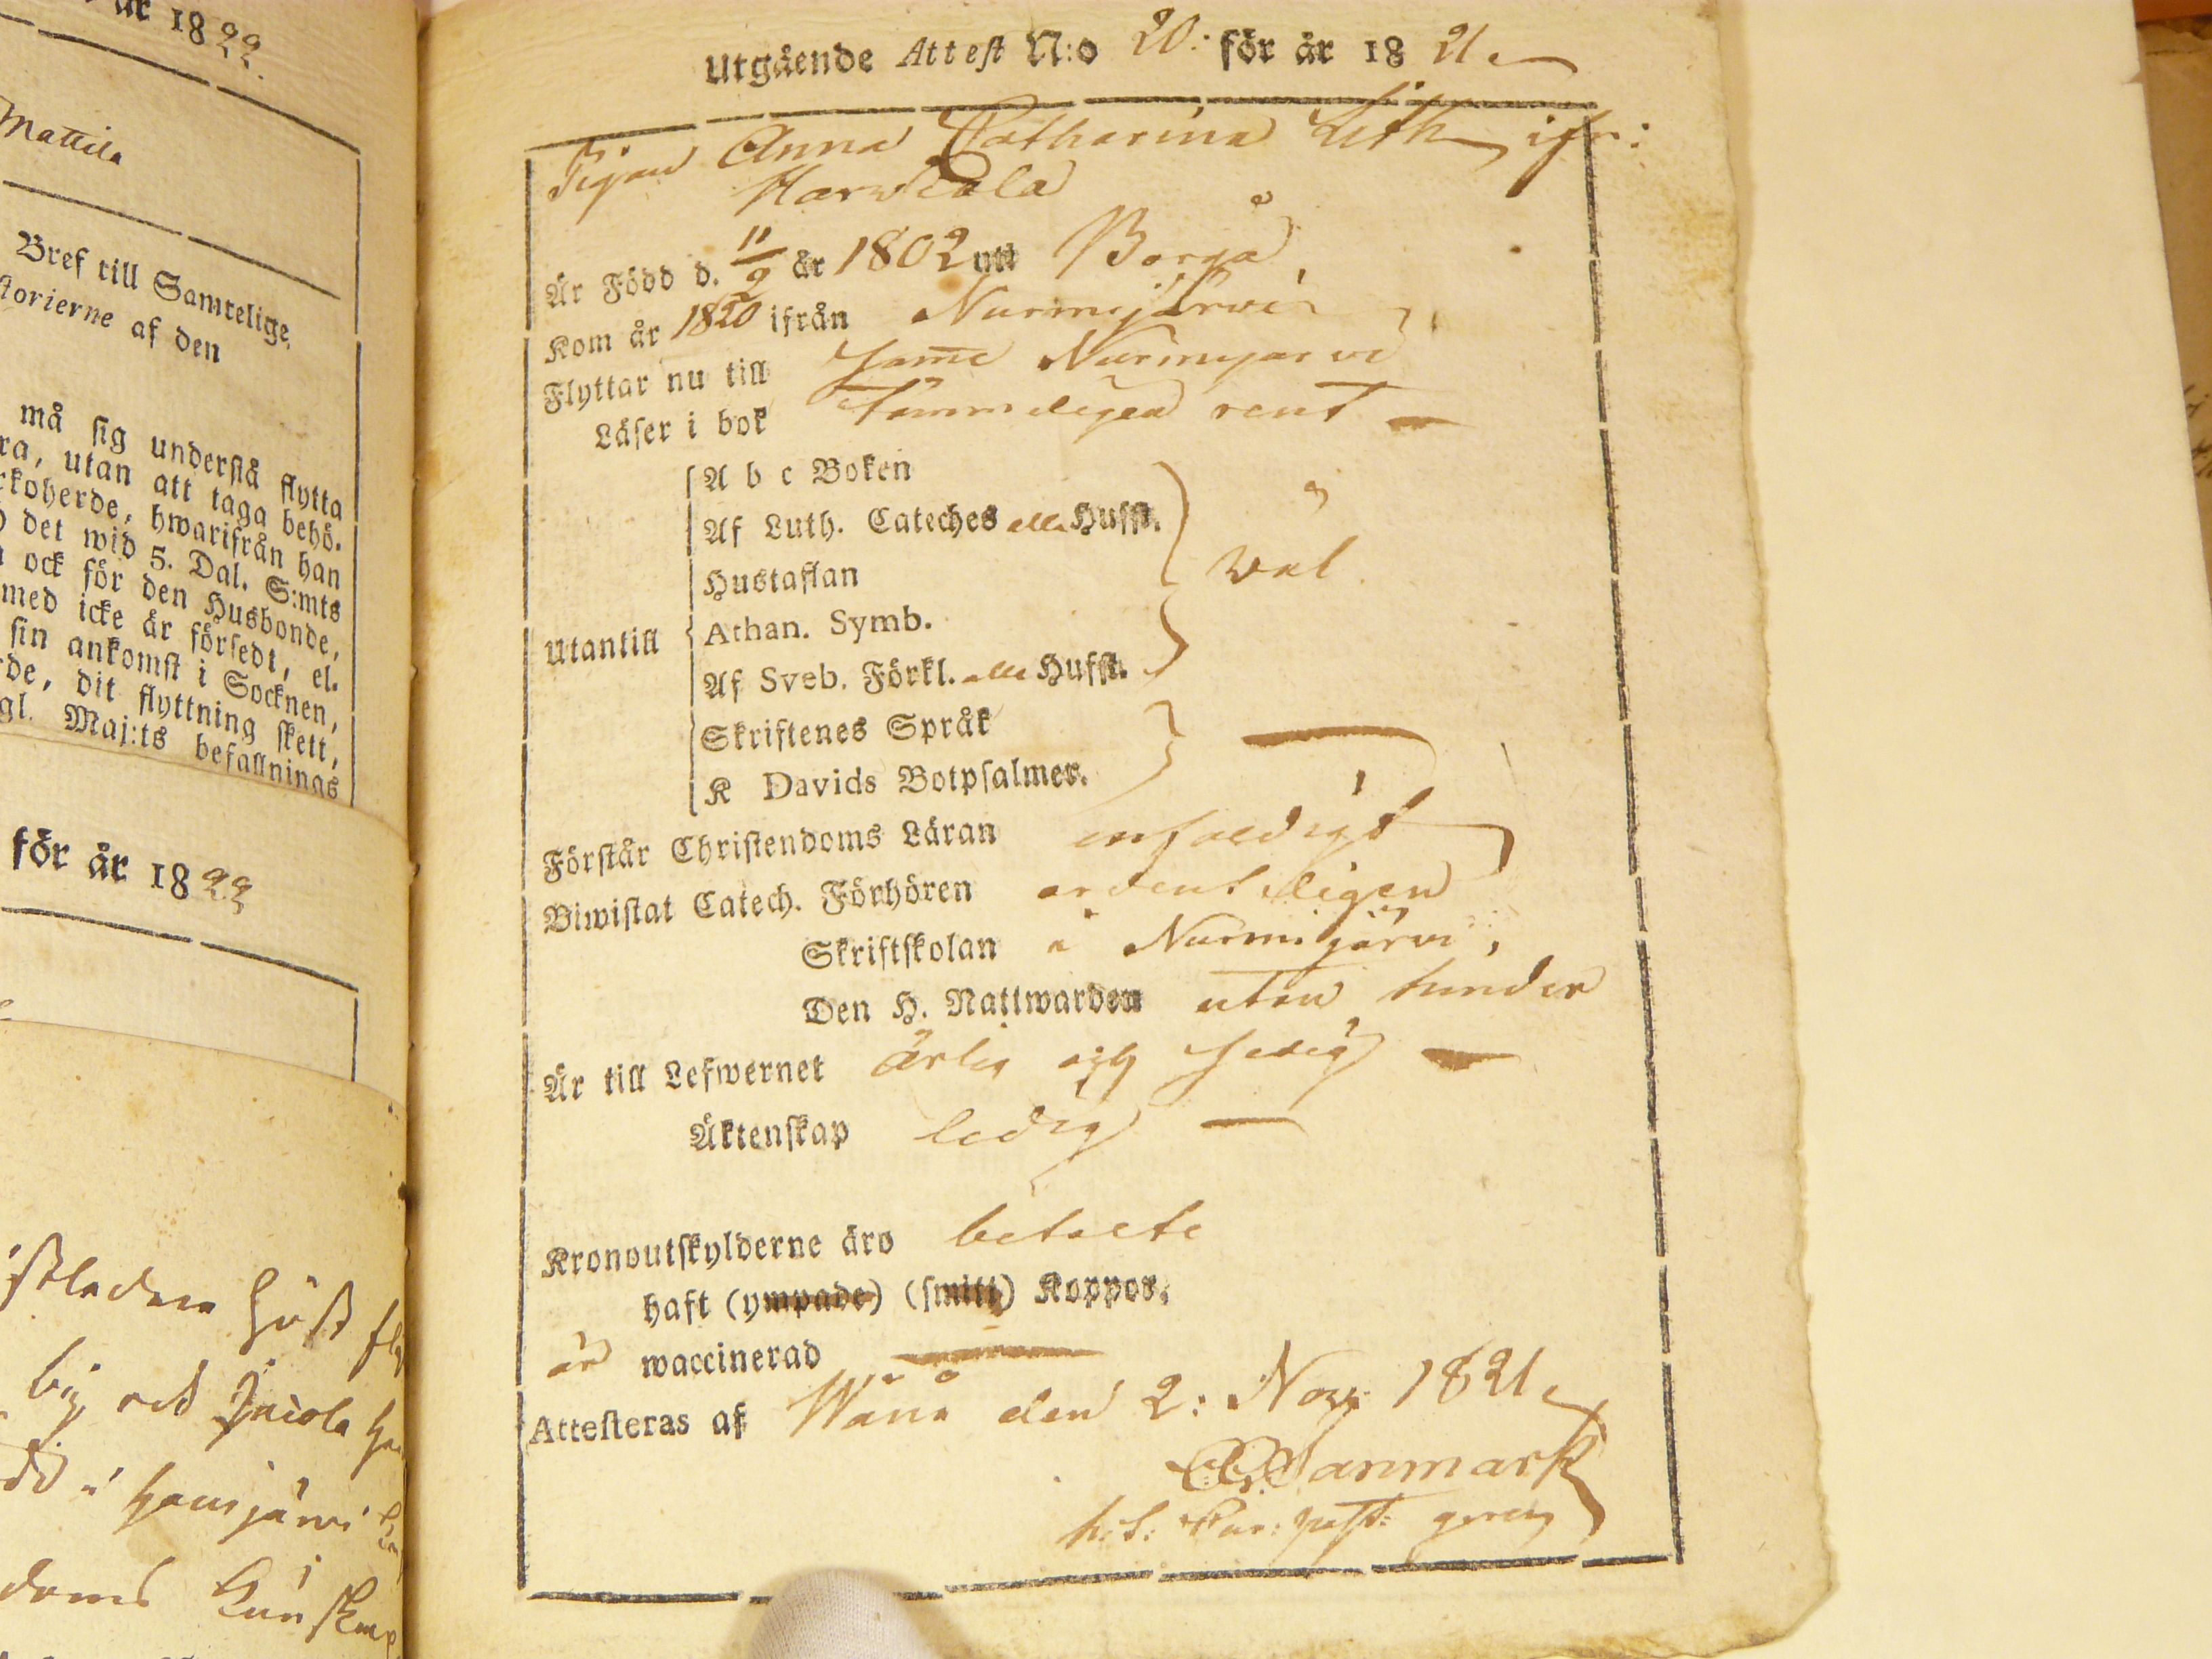 år 1822.
Mattila
Bref till Samtelige
storierne af den
må sig understå flytta
ra, utan att taga behö-
rkoherde, hwarifrån han
det wid 5. Dal. S:mts
ock för den Husbonde,
med icke är försedt, el-
sin ankomst i Socknen,
rde, dit flyttning skett,
gl. Maj:ts befallnings
för år 1822
Utgående Attest N:o 20. för år 1821
Pigan Anna Catharina Lith ifr:
Harviala
Är Född d. 11/9 år 1802 uti Borgå
Kom år 1820 ifrån Nurmijärvi
Flyttar nu till samme Nurmijärvi
Läser i bok sämmeligen rent
A b c Boken
Af Luth. Cateches alla Hufst.
Hustaflan väl
Utantill Athan. Symb.
Af Sveb. Förkl. alla Hufst.
Skriftenes Språk
K Davids Botpsalmer.
Förstår Christendoms Läran enfaldigt
Biwistat Catech. Förhören ordentligen
Skriftskolan i Nurmijärvi,
Den H. Nattwarden utan hinder
Är till Lefwernet ärlig och sedig
Äktenskap ledig
Kronoutskylderne äro betalte
haft (ympade) (smitt) Koppor.
är waccinerad
Attesteras af Wånå den 2: Nov. 1821
Sanmark